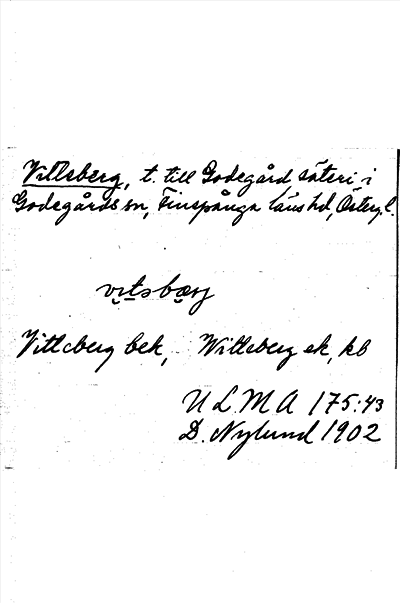 Vittsberg, t. till Godegård säteri i
Godegårds sn, Finspånga läns hd, Österg. l.
vitsbærj
Vittsberg bek, Wittsberg ek, kb
ULMA 175:43
D. Nylund 1902